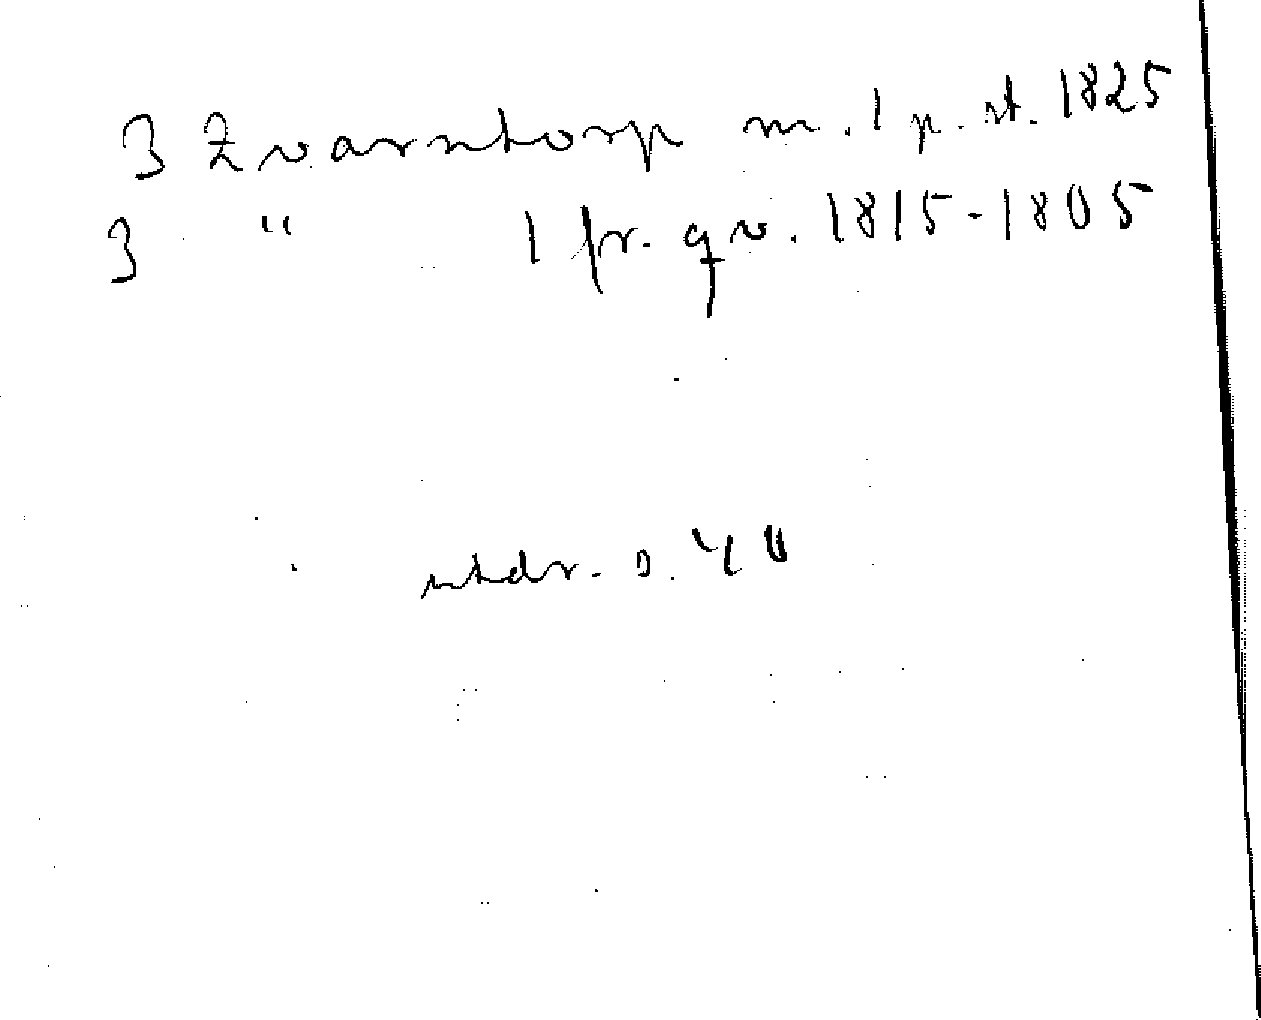 3 Zvarntorp m. 1 p. st. 1825
3 " 1 fr. qv. 1815-1805
utdr. s. 40